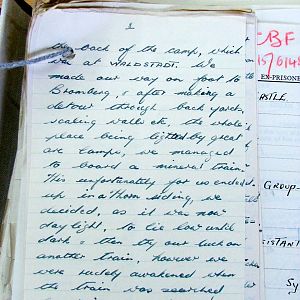 3
the back of the camp, which
was at WALDSTADT. We
made our way on foot to
Bromberg, & after making a
detour through back yards,
scaling walls etc, the whole
place being lighted by great
arc lamps, we managed
to board a mineral train.
This unfortunately for us ended
up in a Thorn siding, we
decided, as it was now
daylight, to lie low until
dark & then try our luck on
another train, however we
were rudely awakened when
the train was searched
CBF
15/6/48
EX-PRISONE
ASTLE
GROUP
SISTANT
Sy